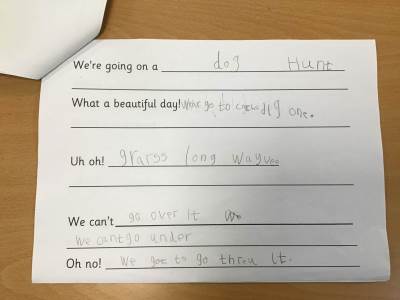 We're going on a dog Hunt
What a beautiful day! We're go to big one.
Uh oh! grarss long wayvee
We can't go over it We
We cant go under
Oh no! We got to go threw it.